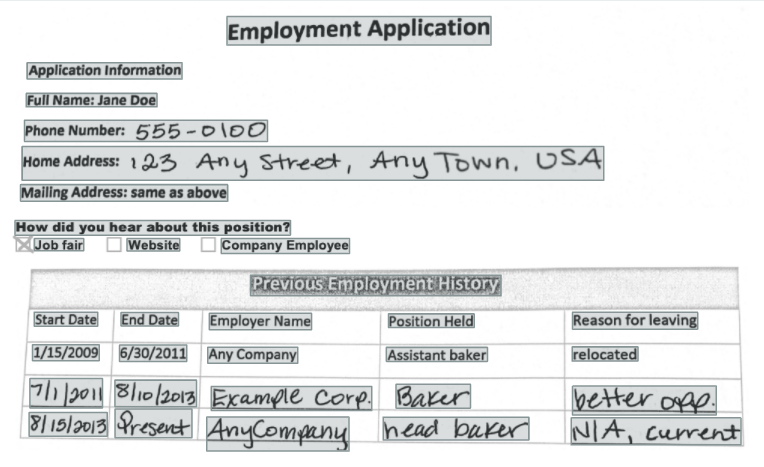 Employment Application
Application Information
Full Name: Jane Doe
Phone Number: 555-0100
Home Address: 123 Any Street, Any Town. USA
Mailing Address: same as above
How did you hear about this position?
Job fair Website Company Employee
Previous Employment History
Start Date End Date Employer Name Position Held Reason for leaving
1/15/2009 6/30/2011 Any Company Assistant baker relocated
7/1/2011 8/10/2013 Example Corp. Baker better opp.
8/15/2013 Present AnyCompany head baker N/A, current